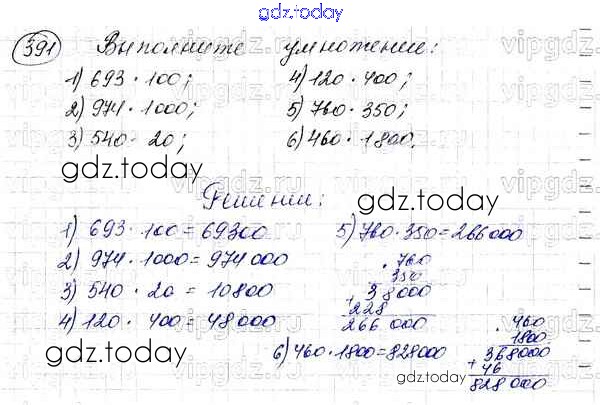 gdz.today
391 Выполните умножение:
1) 693 · 100;
2) 974 · 1000;
3) 540 · 20;
4) 120 · 400;
5) 760 · 350;
6) 460 · 1800.
gdz.today
gdz.today
Решение:
1) 693 · 100 = 69300
2) 974 · 1000 = 974 000
3) 540 · 20 = 10800
4) 120 · 400 = 48000
5) 760 · 350 = 266000
· 760
350
+ 38000
228
266 000
6) 460 · 1800 = 828000
· 460
1800
368000
+ 46
828 000
gdz.today
gdz.today